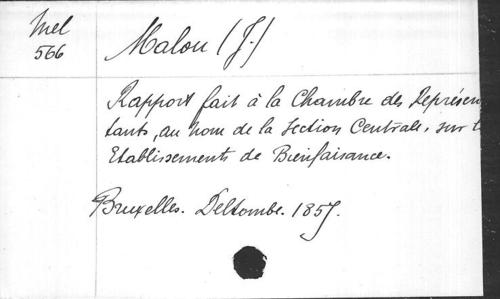 Mel
566
Malou (J.)
Rapport fait à la Chambre des Représen
tants, au nom de la Section Centrale, sur
Etablissements de Bienfaisance.
Bruxelles. Deltombe. 1857.